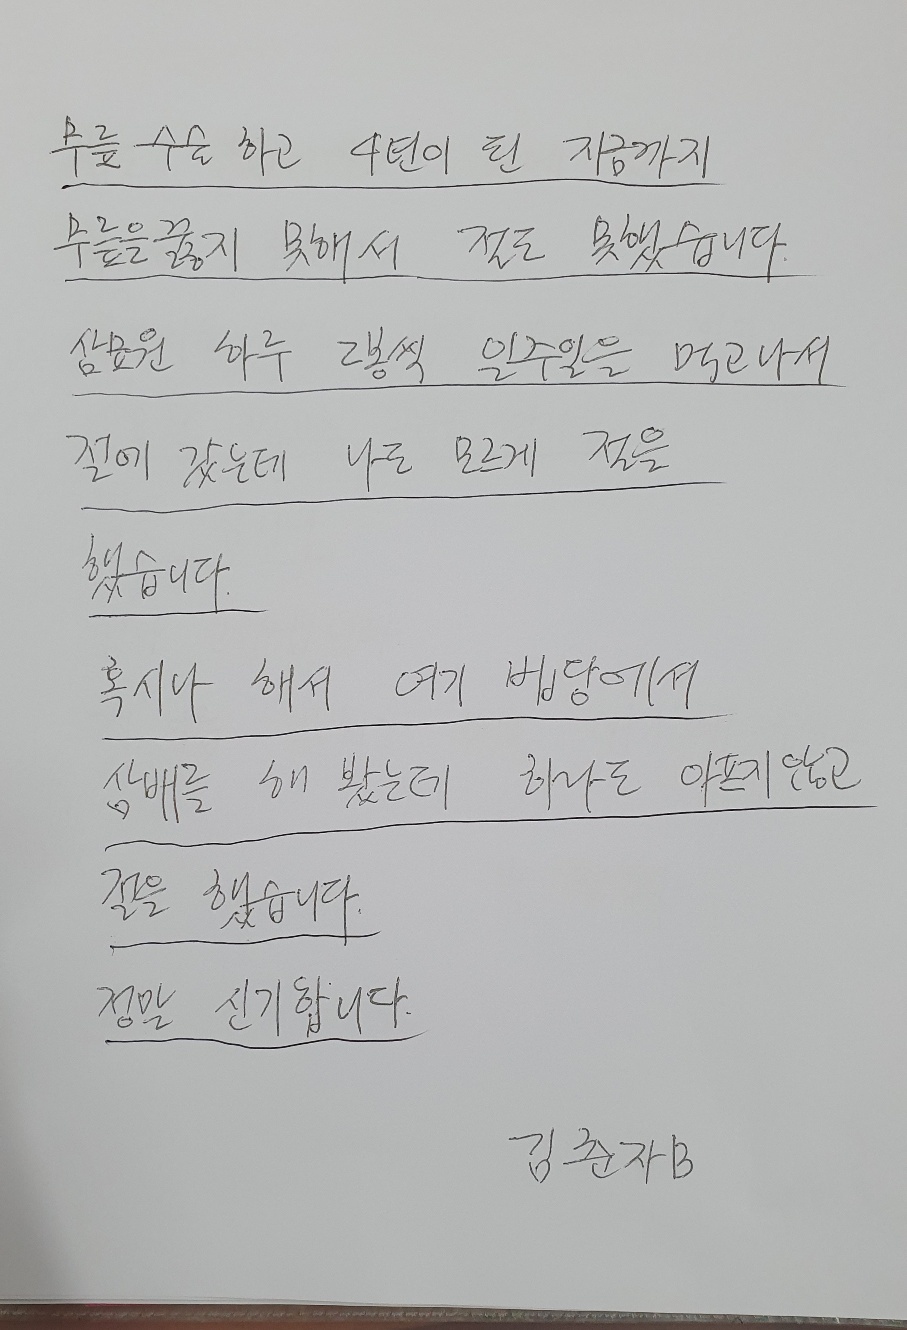 무릎 수술 하고 4년이 된 지금까지
무릎을 꿇지 못해서 절도 못했습니다.
삼묘원 하루 2봉씩 일주일을 먹고나서
절에 갔는데 나도 모르게 절을
했습니다.
혹시나 해서 여기 법당에서
삼배를 해 봤는데 하나도 아프지않고
절을 했습니다.
정말 신기합니다.
김춘자B